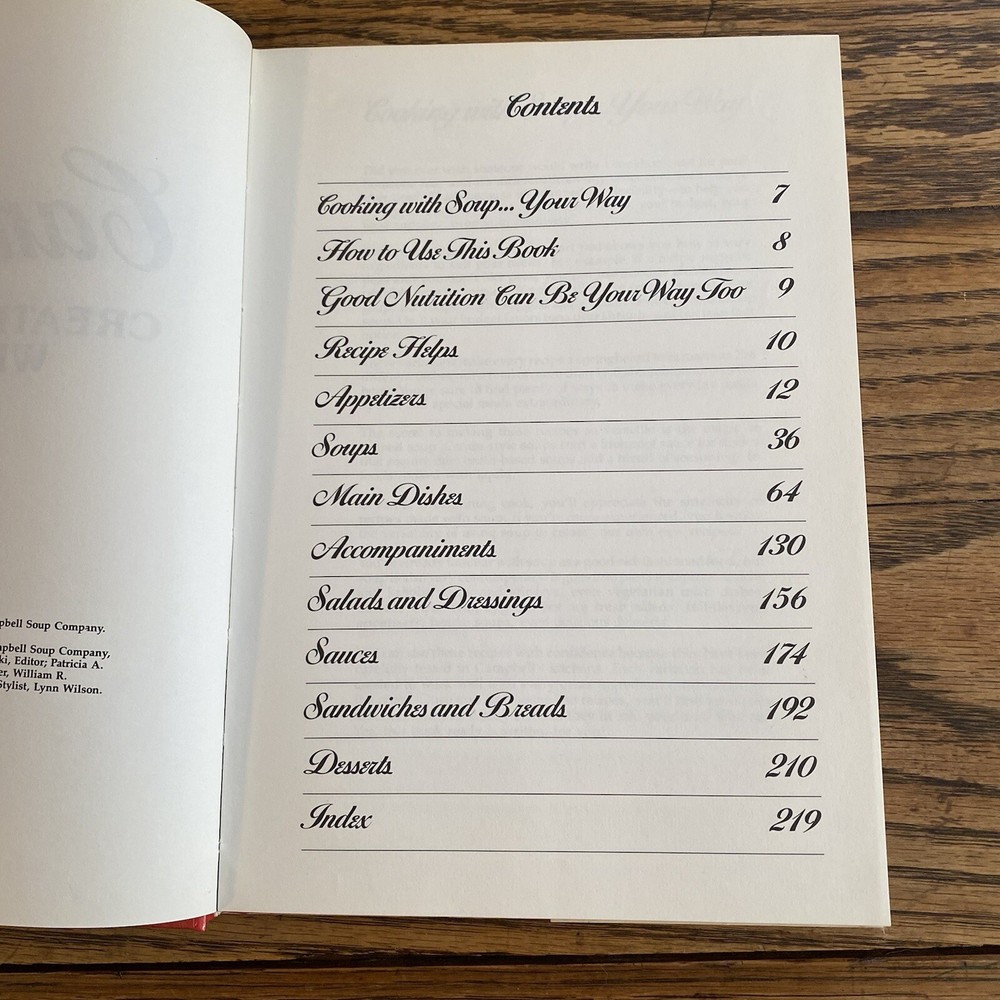 pbell Soup Company.
pbell Soup Company,
ki, Editor; Patricia A.
er, William R.
Stylist, Lynn Wilson.
Contents
Cooking with Soup... Your Way 7
How to Use This Book 8
Good Nutrition Can Be Your Way Too 9
Recipe Helps 10
Appetizers 12
Soups 36
Main Dishes 64
Accompaniments 130
Salads and Dressings 156
Sauces 174
Sandwiches and Breads 192
Desserts 210
Index 219